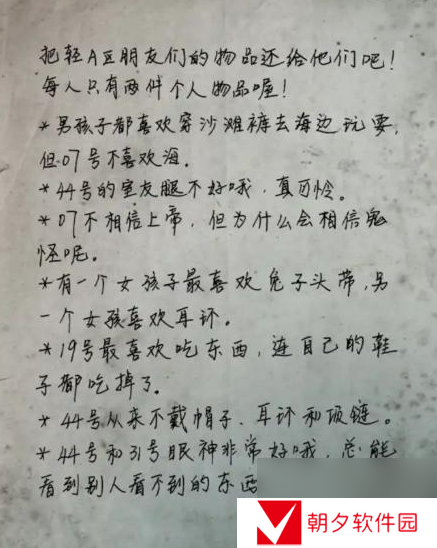 把轻A区朋友们的物品还给他们吧!
每人只有两件个人物品喔!
*男孩子都喜欢穿沙滩裤去海边玩耍,
但07号不喜欢海.
*44号的室友腿不好哦,真可怜。
*07不相信上帝,但为什么会相信鬼
怪呢。
*有一个女孩子最喜欢兔子头带,另
一个女孩喜欢耳环。
*19号最喜欢吃东西,连自己的鞋
子都吃掉了.
*44号从来不戴帽子、耳环和项链。
*44号和31号眼神非常好哦,总能
看到别人看不到的东西
朝夕软件园